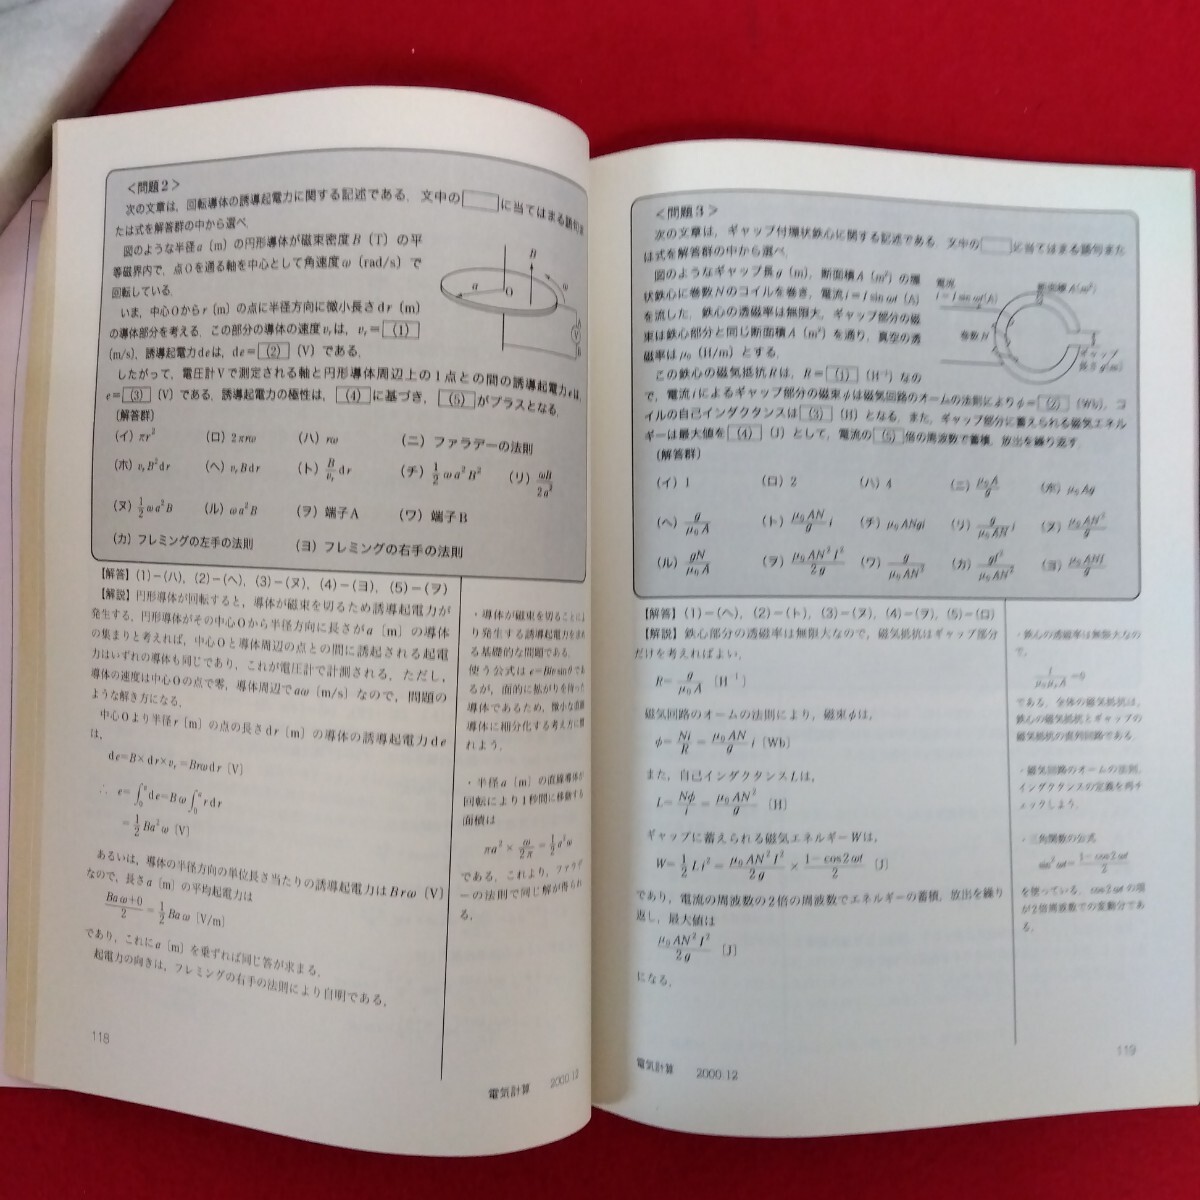 <問題2>
次の文章は，回転導体の誘導起電力に関する記述である．文中の□に当てはまる語句ま
たは式を解答群の中から選べ．
図のような半径a〔m〕の円形導体が磁束密度B〔T〕の平
等磁界内で，点Oを通る軸を中心として角速度ω〔rad/s〕で
回転している．
いま，中心Oからr〔m〕の点に半径方向に微小長さdr〔m〕
の導体部分を考える．この部分の導体の速度vrは，vr＝(1)
〔m/s〕，誘導起電力deは，de＝(2)〔V〕である．
したがって，電圧計Vで測定される軸と円形導体周辺上の1点との間の誘導起電力eは，
e＝(3)〔V〕である．誘導起電力の極性は，(4)に基づき，(5)がプラスとなる．
〔解答群〕
(イ) πr² (ロ) 2πrω (ハ) rω (ニ) ファラデーの法則
(ホ) vrB²dr (ヘ) vrBdr (ト) B/vr dr (チ) 1/2 ωa²B² (リ) ωB/2a²
(ヌ) 1/2 ωa²B (ル) ωa²B (ヲ) 端子A (ワ) 端子B
(カ) フレミングの左手の法則 (ヨ) フレミングの右手の法則
B
a
O
ω
A
V
B
【解答】(1)－(ハ)，(2)－(ヘ)，(3)－(ヌ)，(4)－(ヨ)，(5)－(ヲ)
【解説】円形導体が回転すると，導体が磁束を切るため誘導起電力が
発生する．円形導体がその中心Oから半径方向に長さがa〔m〕の導体
の集まりと考えれば，中心Oと導体周辺の点との間に誘起される起電
力はいずれの導体も同じであり，これが電圧計で計測される．ただし，
導体の速度は中心Oの点で零，導体周辺でaω〔m/s〕なので，問題の
ような解き方になる．
中心Oより半径r〔m〕の点の長さdr〔m〕の導体の誘導起電力de
は，
de=B×dr×vr=Brωdr〔V〕
∴ e=∫₀ᵃde=Bω∫₀ᵃrdr
=1/2 Ba²ω〔V〕
あるいは，導体の半径方向の単位長さ当たりの誘導起電力はBrω〔V〕
なので，長さa〔m〕の平均起電力は
Baω+0/2=1/2 Baω〔V/m〕
であり，これにa〔m〕を重ずれば同じ答が求まる．
起電力の向きは，フレミングの右手の法則により自明である．
・導体が磁束を切ることによ
り発生する誘導起電力を求め
る基礎的な問題である．
使う公式はe=Blv sinθであ
るが，面的に拡がりを持った
導体であるため，微小な直線
導体に細分化する考え方に慣
れよう．
・半径a〔m〕の直線導体が
回転により1秒間に移動する
面積は
πa²×ω/2π=1/2 a²ω
である．これより，ファラデ
ーの法則で同じ解が得られ
る．
118
電気計算 2000.12
<問題3>
次の文章は，ギャップ付環状鉄心に関する記述である．文中の□に当てはまる語句また
は式を解答群の中から選べ．
図のようなギャップ長g〔m〕，断面積A〔m²〕の環
状鉄心に巻数Nのコイルを巻き，電流i＝I sin ωt〔A〕
を流した．鉄心の透磁率は無限大，ギャップ部分の磁
束は鉄心部分と同じ断面積A〔m²〕を通り，真空の透
磁率はμ₀〔H/m〕とする．
この鉄心の磁気抵抗Rは，R＝(1)〔H⁻¹〕なの
で，電流iによるギャップ部分の磁束φは磁気回路のオームの法則によりφ＝(2)〔Wb〕，コ
イルの自己インダクタンスは(3)〔H〕となる．また，ギャップ部分に蓄えられる磁気エネル
ギーは最大値を(4)〔J〕として，電流の(5)倍の周波数で蓄積，放出を繰り返す．
〔解答群〕
(イ) 1 (ロ) 2 (ハ) 4 (ニ) μ₀A/g (ホ) μ₀Ag
(ヘ) g/μ₀A (ト) μ₀AN/g i (チ) μ₀ANgi (リ) g/μ₀AN i (ヌ) μ₀AN²/g
(ル) gN/μ₀A (ヲ) μ₀AN²I²/2g (ワ) g/μ₀AN² (カ) gI²/μ₀AN² (ヨ) μ₀ANI/g
電流
i＝I sin ωt〔A〕
断面積A〔m²〕
巻数N
ギャップ
長さg〔m〕
【解答】(1)－(ヘ)，(2)－(ト)，(3)－(ヌ)，(4)－(ヲ)，(5)－(ロ)
【解説】鉄心部分の透磁率は無限大なので，磁気抵抗はギャップ部分
だけを考えればよい．
R=g/μ₀A〔H⁻¹〕
磁気回路のオームの法則により，磁束φは，
φ=Ni/R=μ₀AN/g i〔Wb〕
また，自己インダクタンスLは，
L=Nφ/i=μ₀AN²/g〔H〕
ギャップに蓄えられる磁気エネルギーWは，
W=1/2 Li²=μ₀AN²I²/2g×1－cos2ωt/2〔J〕
であり，電流の周波数の2倍の周波数でエネルギーの蓄積，放出を繰り
返し，最大値は
μ₀AN²I²/2g〔J〕
になる．
・鉄心の透磁率は無限大なの
で，
l/μ₀μsA=0
である．全体の磁気抵抗は，
鉄心の磁気抵抗とギャップの
磁気抵抗の直列回路である．
・磁気回路のオームの法則，
インダクタンスの定義を再チ
ェックしよう．
・三角関数の公式
sin²ωt=1－cos2ωt/2
を使っている．cos2ωtの項
が2倍周波数での変動分であ
る．
119
電気計算 2000.12